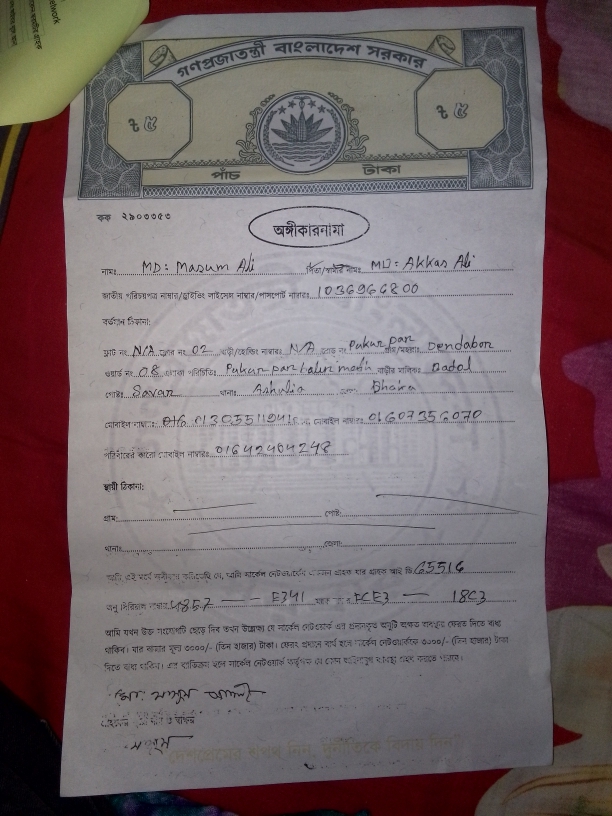 গণপ্রজাতন্ত্রী বাংলাদেশ সরকার
৳ ৫ ৳ ৫
পাঁচ টাকা
কক ২৯০৩৩৫৩
অঙ্গীকারনামা
নামঃ MD: Masum Ali পিতা/স্বামীর নামঃ MD: Akkas Ali
জাতীয় পরিচয়পত্র নাম্বার/ড্রাইভিং লাইসেন্স নাম্বার/পাসপোর্ট নাম্বারঃ 1036966800
বর্তমান ঠিকানা:
ফ্লাট নং N/A ফ্লোর নং 02 বাড়ী/হোল্ডিং নাম্বারঃ N/A রোড নং Pukur par Dendabor
ওয়ার্ড নং 08 এলাকা পরিচিতিঃ Pukur par বাড়ীর মালিকঃ Badol
পোষ্টঃ Savar থানাঃ Ashulia Dhaka
মোবাইল নাম্বারঃ মোবাইল নাম্বারঃ 01607356070
পরিবারের কারো মোবাইল নাম্বারঃ 01642464248
স্থায়ী ঠিকানা:
গ্রাম: পোষ্ট:
থানাঃ জেলা:
আমি এই মর্মে অঙ্গীকার করিতেছি যে, আমি সার্কেল নেটওয়ার্কের একজন গ্রাহক যার গ্রাহক আই ডি G5516
অনু সিরিয়াল নাম্বার 4857 — — E341 FCE3 — 18C3
আমি যখন উক্ত সংযোগটি ছেড়ে দিব তখন উল্লেখ্য যে সার্কেল নেটওয়ার্ক এর প্রদানকৃত অনুটি অক্ষত অবস্থায় ফেরত দিতে বাধ্য
থাকিব। যার বাজার মূল্য ৩০০০/- (তিন হাজার) টাকা। ফেরৎ প্রদানে ব্যর্থ হলে সার্কেল নেটওয়ার্ককে ৩০০০/- (তিন হাজার) টাকা
দিতে বাধ্য থাকিব। এর ব্যতিক্রম হলে সার্কেল নেটওয়ার্ক কর্তৃপক্ষ যে কোন আইনানুগ ব্যবস্থা গ্রহন করতে পারবে।
মোঃ মাসুম আলী
মাসুম
দেশপ্রেমের শপথ নিন, দুর্নীতিকে বিদায় দিন